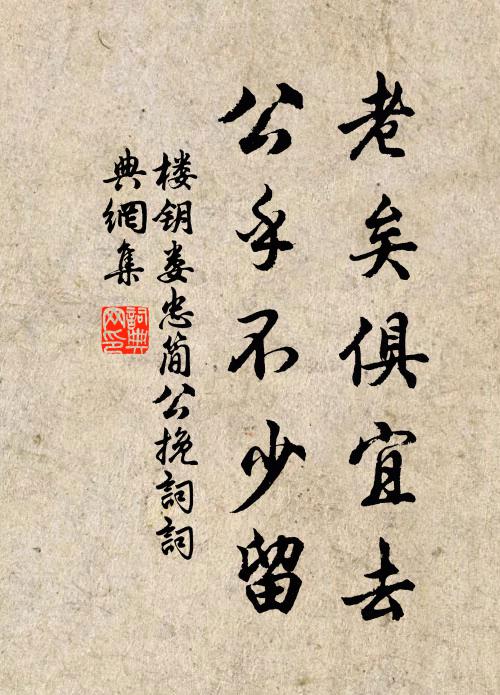 老矣俱宜去
公乎不少留
楼钥娄忠简公挽詞詞
典網集
詞典网印